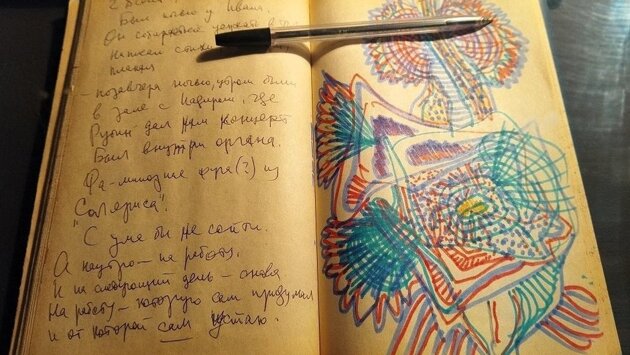 Был ночью у Ивана.
Он старается уезжать в
написал стихи
- позавчера ночью, утром были
в зале с Кавиным, где
Рубин дал нам концерт
Был внутри органа.
Фа-минодные фуга(?) из
"Соляриса".
С ума бы не сойти.
А наутро - на работу.
И на следующий день - снова
На работу - которую сам придумал
и от которой сам устаю.